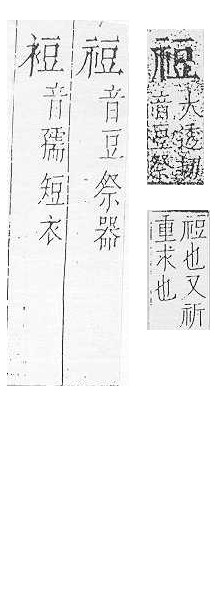 䄈音豆祭器
裋音孺短衣
䄈大透切
音豆祭
䄈也又祈
重求也